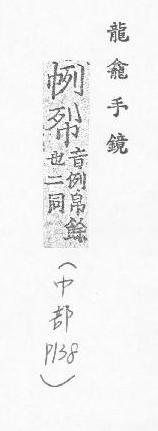 龍龕手鏡
音例帛餘
也二同
(巾部
P138)